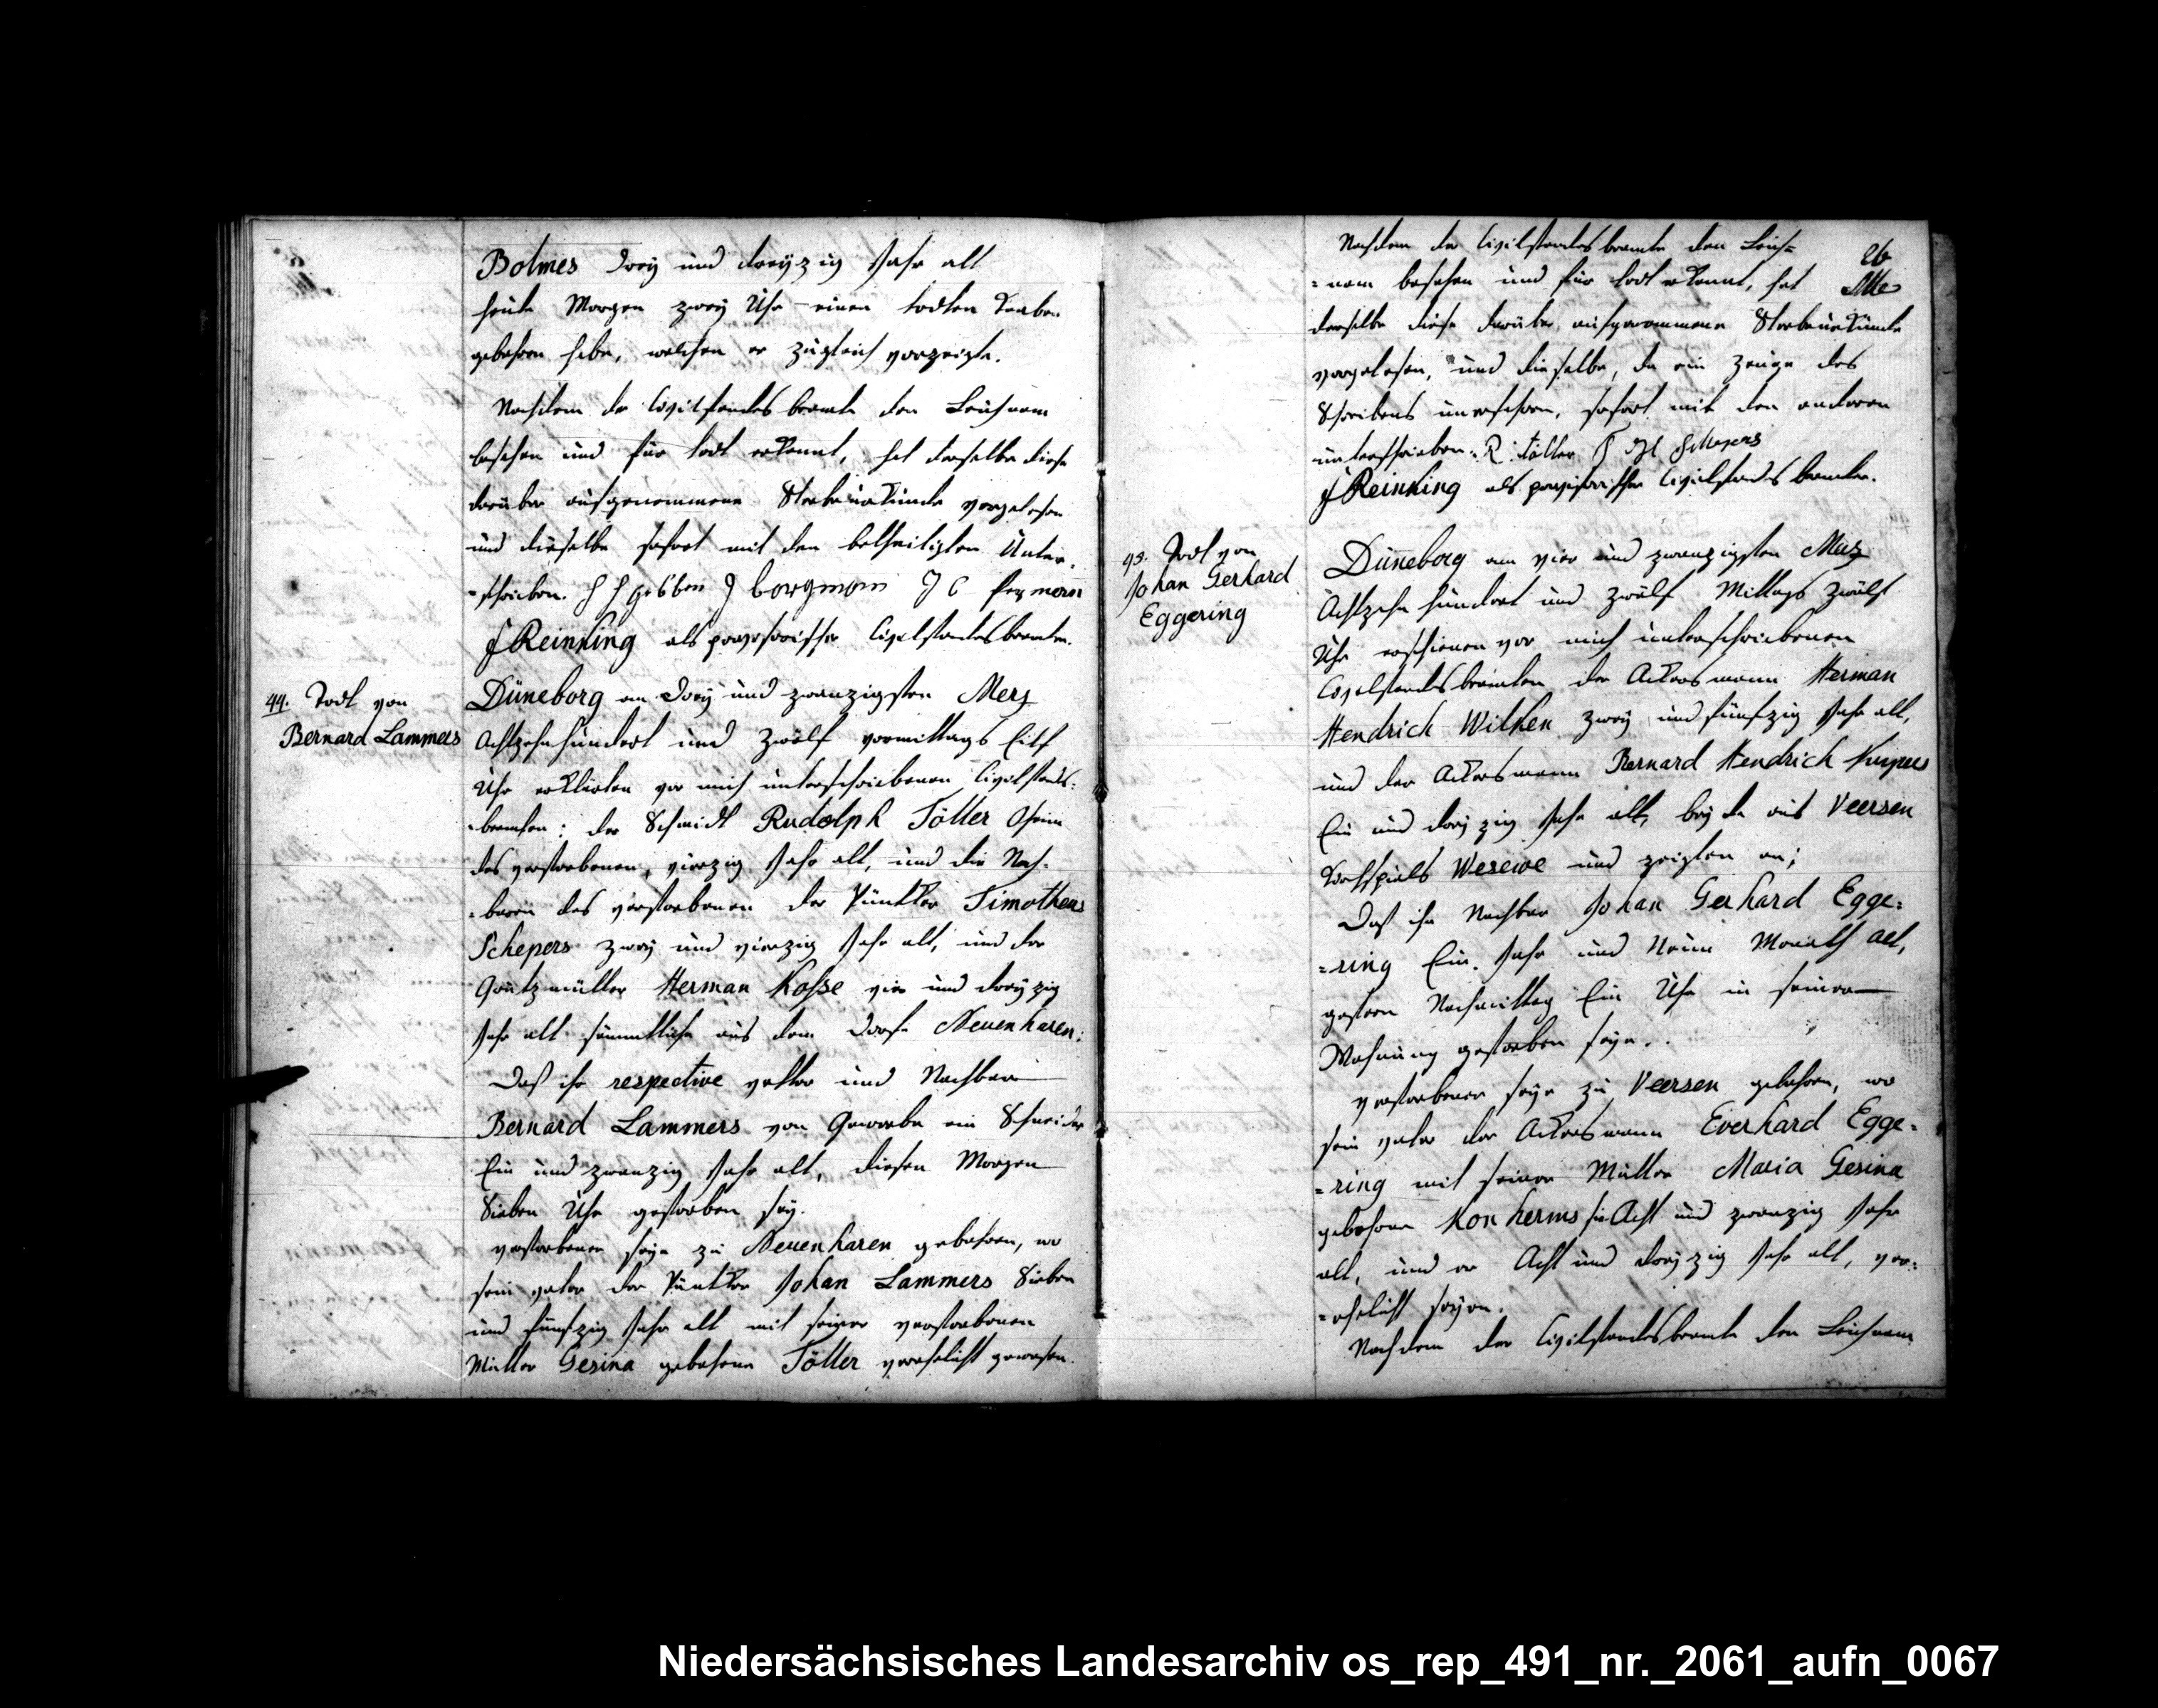 Bolmes drey und dreyzig Jahr alt
heute Morgen zwey Uhr einen todten Knaben
gebohren habe, welchen er zugleich vorzeigte.
Nachdem der Civilstandesbeamte den Leichnam
besehen und für todt erkannt, hat derselbe diese
darüber aufgenommene Sterbeurkunde vorgelesen
und dieselbe sofort mit den betheiligten Unter-
=schrieben. J borgman J C
J Reinking als provisorischer Civilstandesbeamte.
44. Todt von
Bernard Lammers
Düneborg am drey und zwanzigsten Merz
Achtzehnhundert und zwölf vormittags Eilf
Uhr erklärten vor mich unterschriebenen Civilstands=
=beamten: der Schmidt Rudolph Töller Oheim
des verstorbenen, vierzig Jahr alt, und die Nach=
=baren des verstorbenen der Püntker Timotheus
Schepers zwey und vierzig Jahr alt, und der
Grützmüller Herman Kosse vier und dreyzig
Jahr alt sämmtliche aus dem Dorfe Neuenharen:
Daß ihr respective Vetter und Nachbar
Bernard Lammers von Gewerbe ein Schneider
Ein und zwanzig Jahr alt, diesen Morgen
Sieben Uhr gestorben sey.
verstorbener seye zu Neuenharen gebohren, wo
sein vater der Püntker Johan Lammers Sieben
und fünfzig Jahr alt mit seiner verstorbenen
Mutter Gesina gebohrne Töller verehelicht gewesen.
26
Nachdem der Civilstandesbeamte den Leich=
=nam besehen und für todt erkannt, hat
derselbe diese darüber aufgenommene Sterbeurkunde
vorgelesen, und dieselbe, da ein Zeuge des
Schreibens unerfahren, sofort mit den anderen
unterschrieben. R: töller Schepers
J Reinking als provisorischer Civilstandsbeamte.
Todt von
Johan Gerhard
Eggering
Düneborg am vier und zwanzigsten Merz
Achtzehnhundert und zwölf Mittags zwölf
Uhr erschienen vor mich unterschriebenen
Civelstandsbeamten der Ackersmann Herman
Hendrich Wilken zwey und fünfzig Jahr alt,
und der Ackersmann Bernard Hendrich Kuypers
Ein und dreyzig Jahr alt, beyde aus Veersen
Kirchspiels Wesewe und zeigten an;
Daß ihr Nachbar Johan Gerhard Egge=
=ring Ein Jahr und Neun Monath alt,
gestern Nachmittag Ein Uhr in seiner
Wohnung gestorben seye.
verstorbener seye zu Veersen gebohren, wo
sein vater der Ackersmann Everhard Egge=
=ring mit seiner Mutter Maria Gesina
gebohrne Konherms sie Acht und zwanzig Jahr
alt, und er Acht und dreyzig Jahr alt, ver=
=ehelicht seyen.
Nachdem der Civilstandesbeamte den Leichnam
Niedersächsisches Landesarchiv os_rep_491_nr._2061_aufn_0067